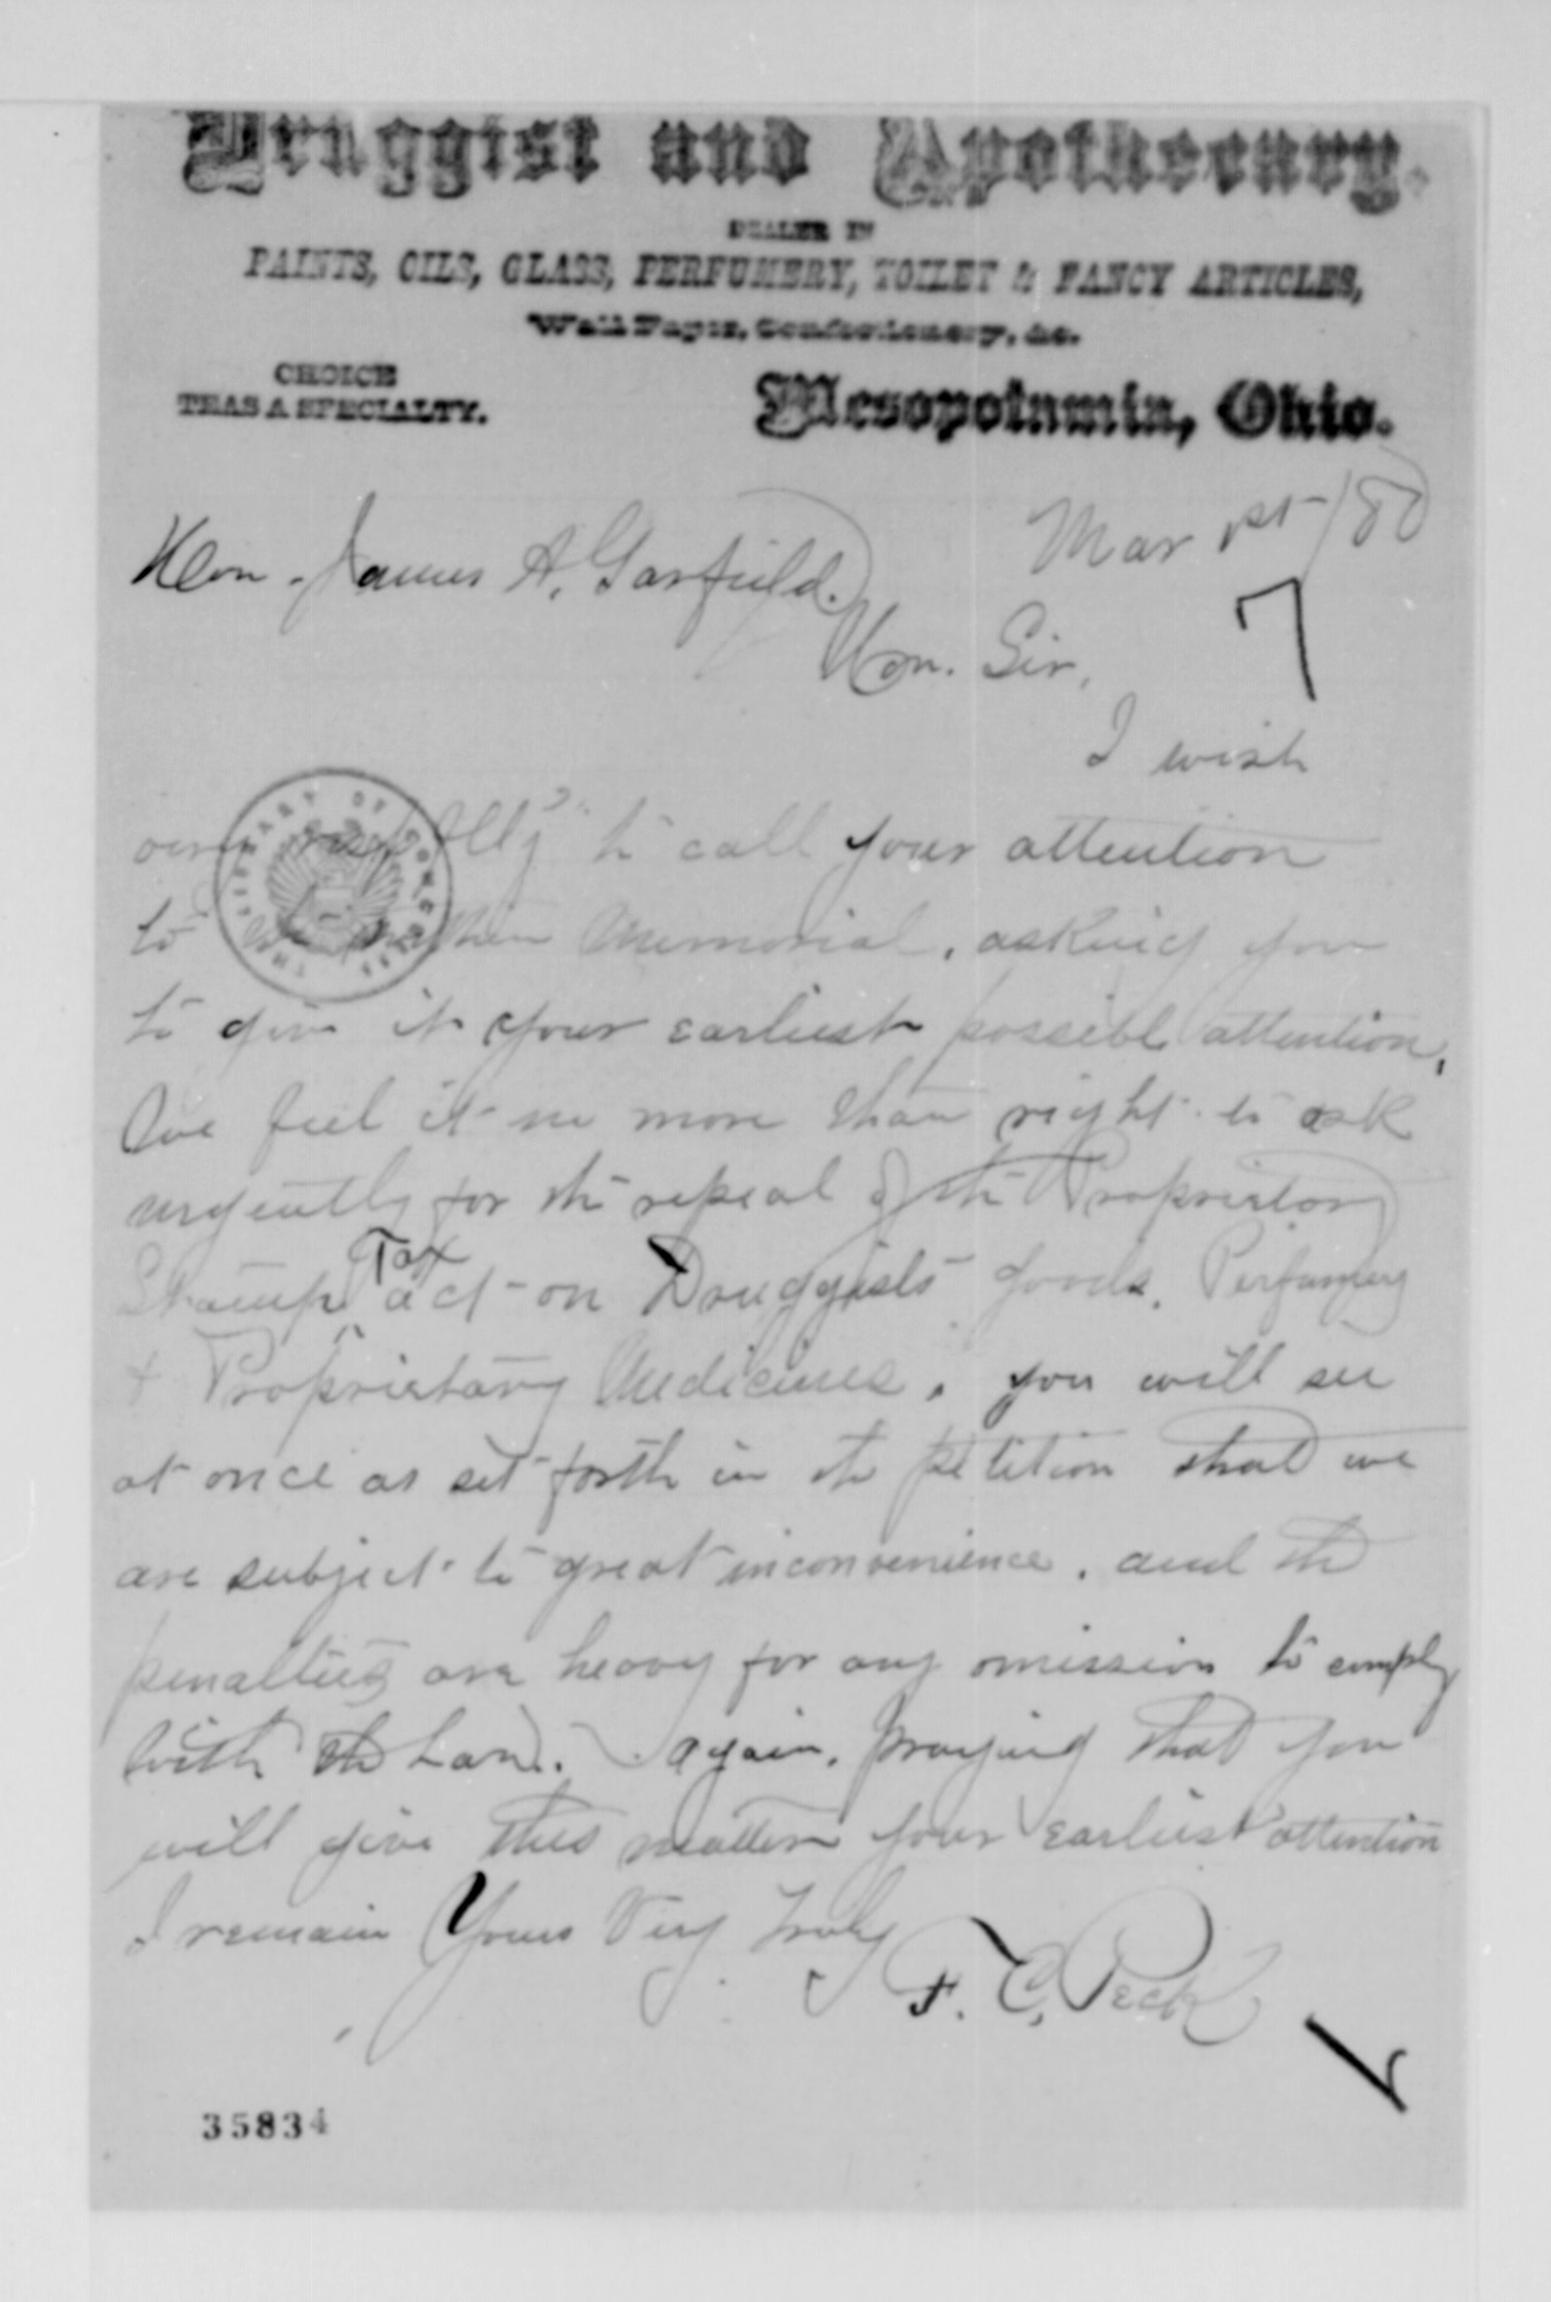 Druggist and Apothecary.
DEALER IN
PAINTS, OILS, GLASS, PERFUMERY, TOILET & FANCY ARTICLES,
Wall Paper, Confectionery, &c.
CHOICE
TEAS A SPECIALTY.
Mesopotamia, Ohio.
Mar 1st /80
Hon. James A. Garfield.
7
Hon. Sir,
I wish
to call your attention
to the within Memorial, asking you
to give it your earliest possible attention,
We feel it no more than right to ask
urgently for the repeal of the Proprietory
Stamp Tax act on Druggists goods, Perfumery
& Proprietary Medicines. you will see
at once as set forth in the petition that we
are subject to great inconvenience. and the
penalties are heavy for any omission to comply
with the Law. again, praying that you
will give this matter your earliest attention
I remain Yours Very Truly
F. C. Peck
35834
THE LIBRARY OF CONGRESS